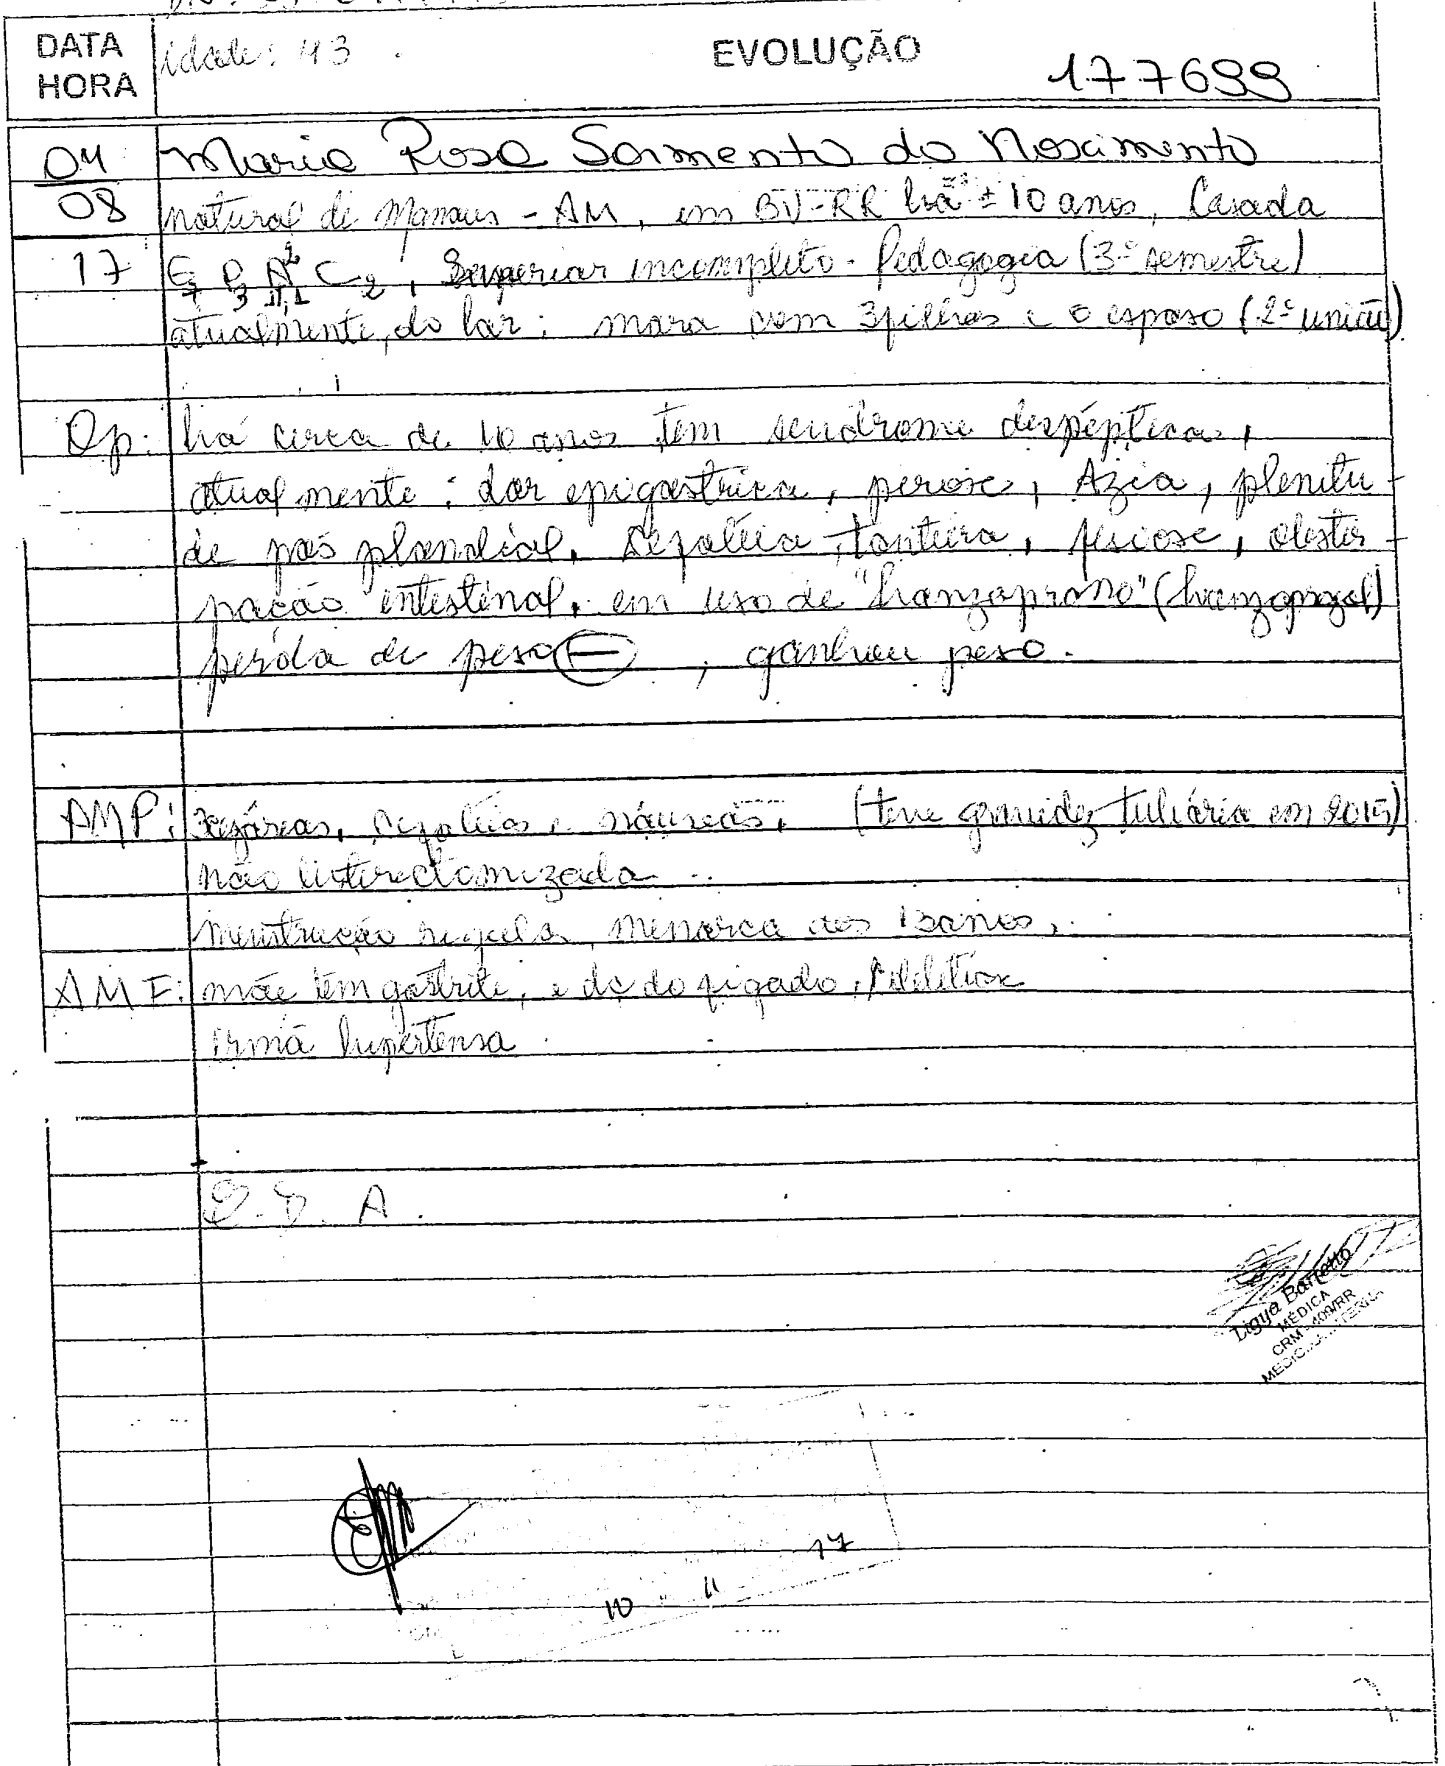 DATA
HORA
Idade: 43
EVOLUÇÃO
177699
04
08
17
Maria Rosa Sarmento do Nascimento
natural de Manaus - AM, em BV-RR há ± 10 anos, Casada
Superior incompleto - Pedagogia (3º semestre)
atualmente, do lar: mora com 3 filhos e o esposo (2ª união)
Qp: há cerca de 10 anos tem sindrome dispéptica,
atualmente: dor epigástrica, pirose, Azia, plenitu-
de pós plandial, cefaleia, tontura,
pação intestinal, em uso de "lranzaprano"
perda de peso (-), ganhou peso.
AMP: cefaleias, náuseas, (teve gravidez tubária em 2015)
não
menstruação regular, menarca aos 13 anos,
AMF: mãe tem gastrite, e dç do figado,
irmã hipertensa
Ligya Barretto
MÉDICA
10 11 17